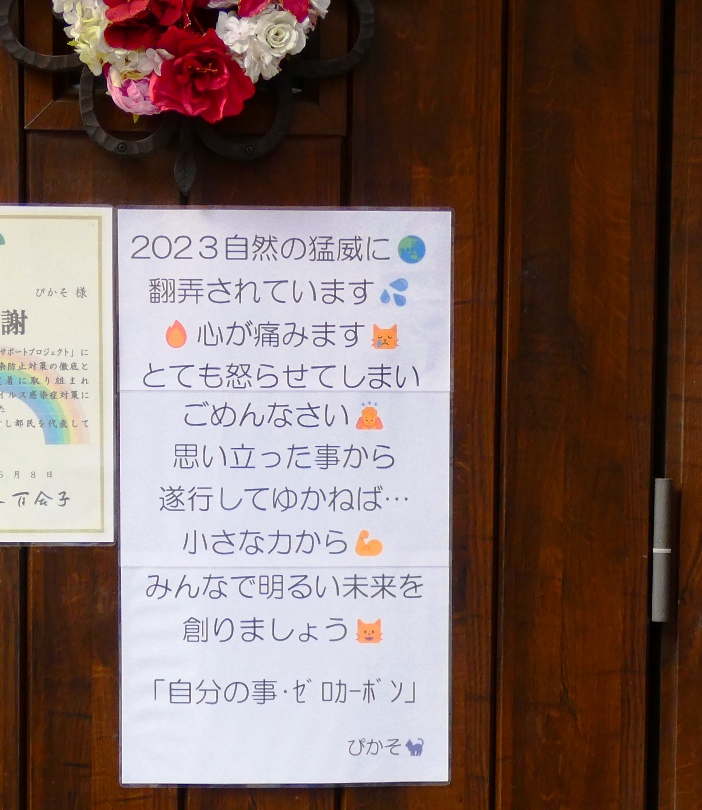 ぴかそ 様
謝
サポートプロジェクト」に
染防止対策の徹底と
着に取り組まれ
イルス感染症対策に
た
し都民を代表して
月 8 日
2023自然の猛威に🌏
翻弄されています💦
🔥心が痛みます😿
とても怒らせてしまい
ごめんなさい🙇
思い立った事から
遂行してゆかねば…
小さな力から💪
みんなで明るい未来を
創りましょう😺
「自分の事・ｾﾞﾛｶｰﾎﾞﾝ」
ぴかそ🐈‍⬛